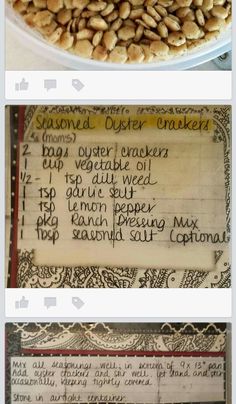 Seasoned Oyster Crackers
(moms)
2 bags oyster crackers
1 cup vegetable oil
1/2 - 1 tsp dill weed
1 tsp garlic salt
1 tsp lemon pepper
1 pkg Ranch Dressing Mix
1 tbsp seasoned salt (optional
Mix all seasonings well, in bottom of 9x13" pan
Add oyster crackers and stir well. Let stand and stir
occasionally, keeping tightly covered.
Store in airtight container.